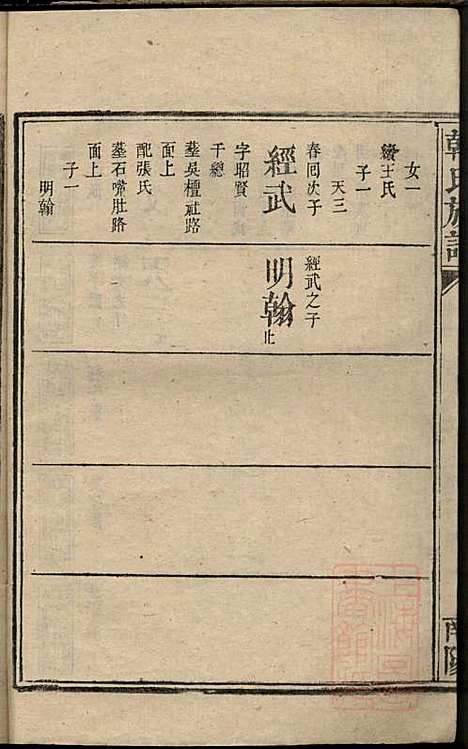 韓氏族譜
南陽
女一
續王氏
子一
天三
春囘次子
經武
字昭賢
千總
塟吳檀祉路
面上
配張氏
塟石嘴肚路
面上
子一
明翰
經武之子
明翰止